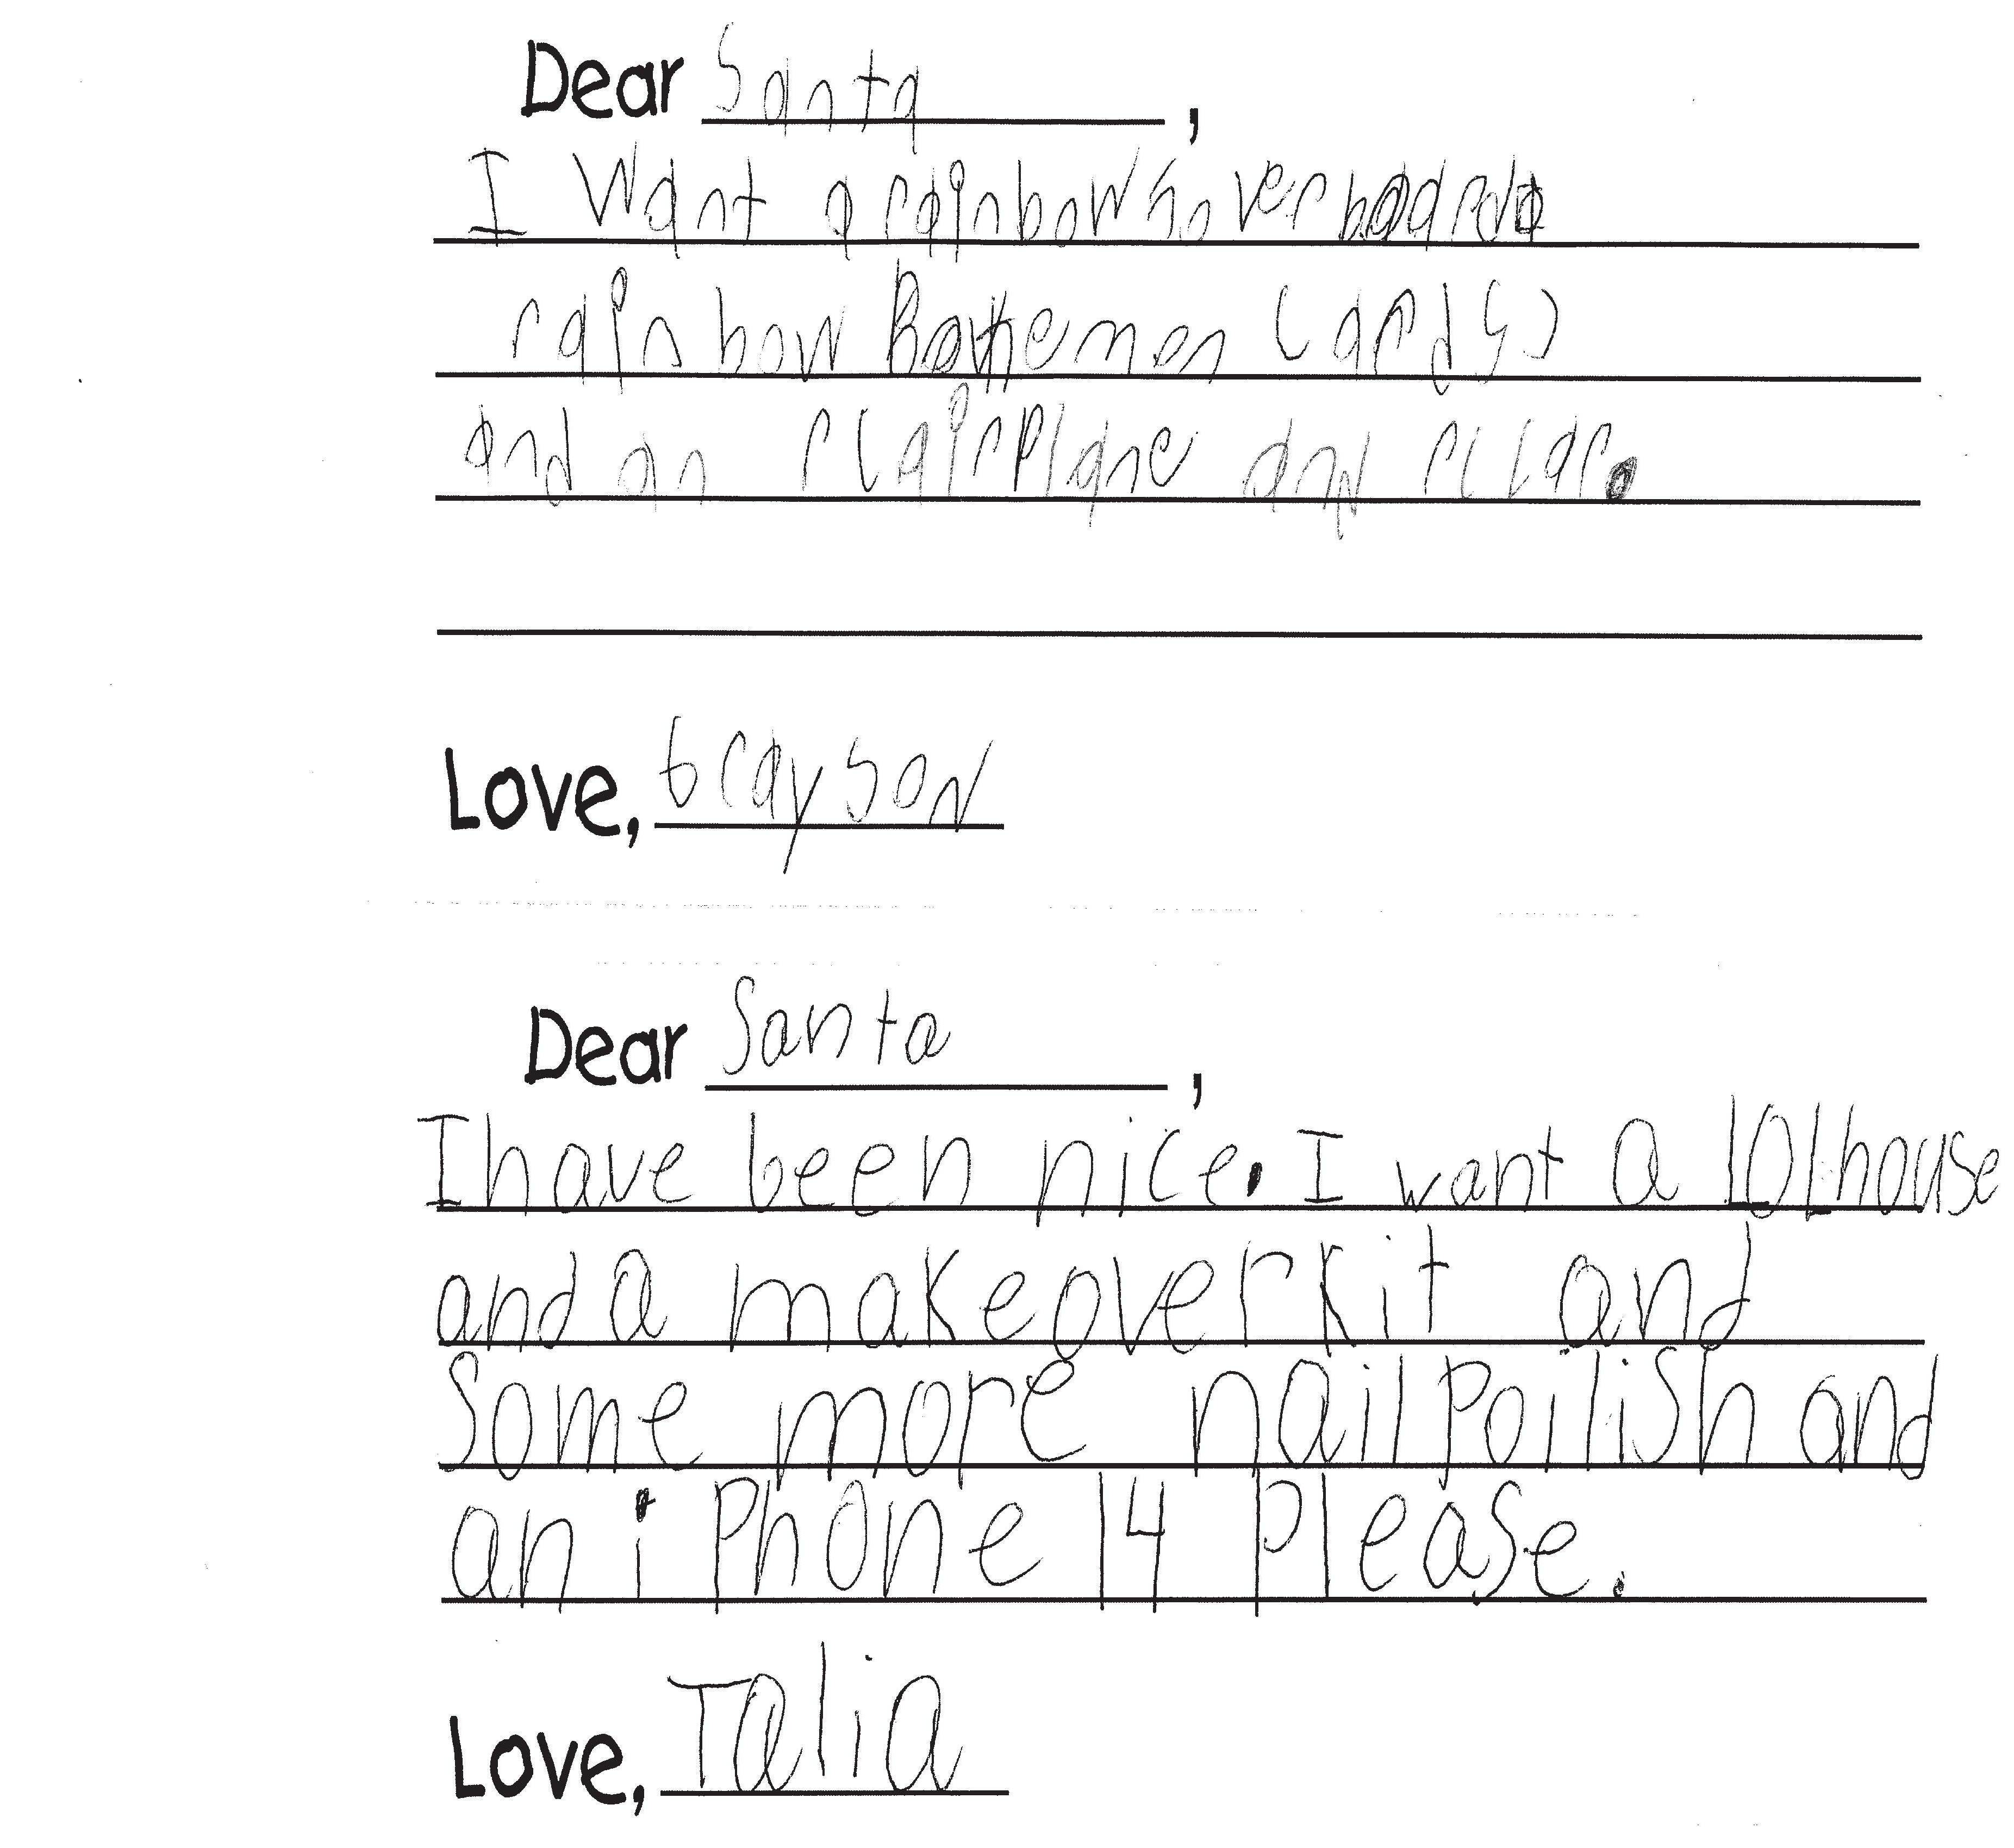 Dear Santa,
I Want a rainbow hover
rainbow Cards
and an rc airplane and rc car.
Love, Grayson
Dear Santa,
I have been nice. I want a LOL house
and a makeover kit and
Some more nail poilish and
an i Phone 14 Please.
Love, Talia